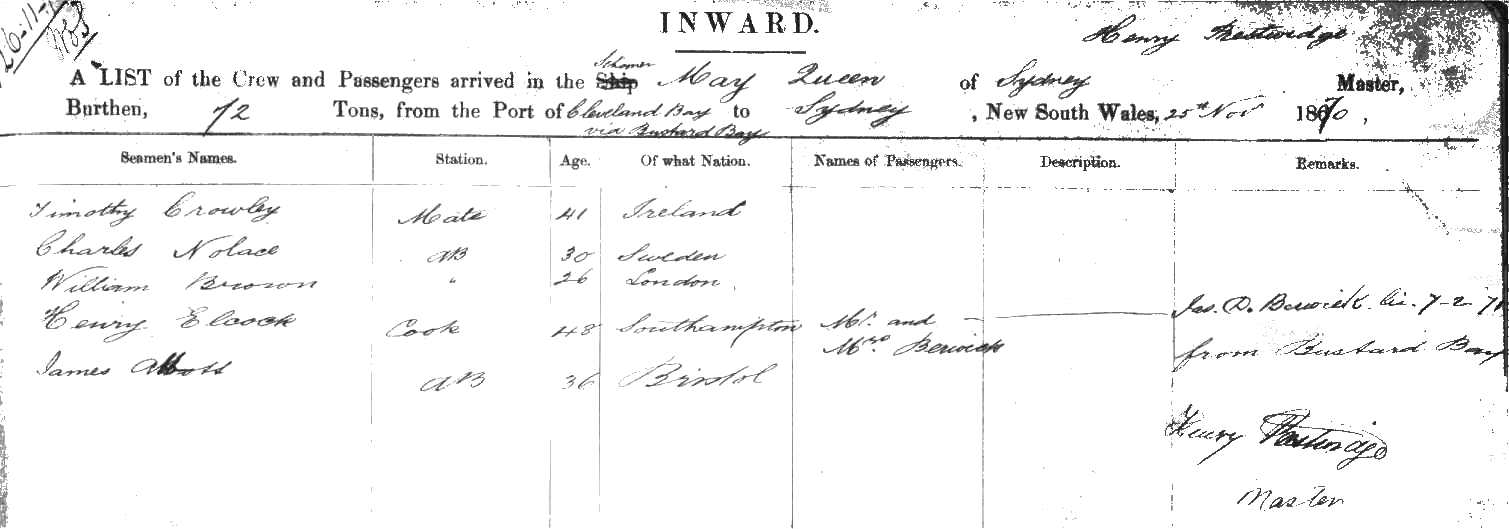 26-11-
INWARD.
Henry Prestwidge
Schooner
A LIST of the Crew and Passengers arrived in the Ship May Queen of Sydney Master,
Burthen, 72 Tons, from the Port of Cleveland Bay to Sydney, New South Wales, 25th Nov 1870,
via Bustard Bay
Seamen's Names. Station. Age. Of what Nation. Names of Passengers. Description. Remarks.
Timothy Crowley Mate 41 Ireland
Charles Nolace AB 30 Sweden
William Brown " 26 London
Henry Elcock Cook 48 Southampton Mr. and Jas. D. Berwick 7-2
Mrs. Berwick from Bustard Bay
James Abbott AB 36 Bristol
Henry Prestwidge
Master